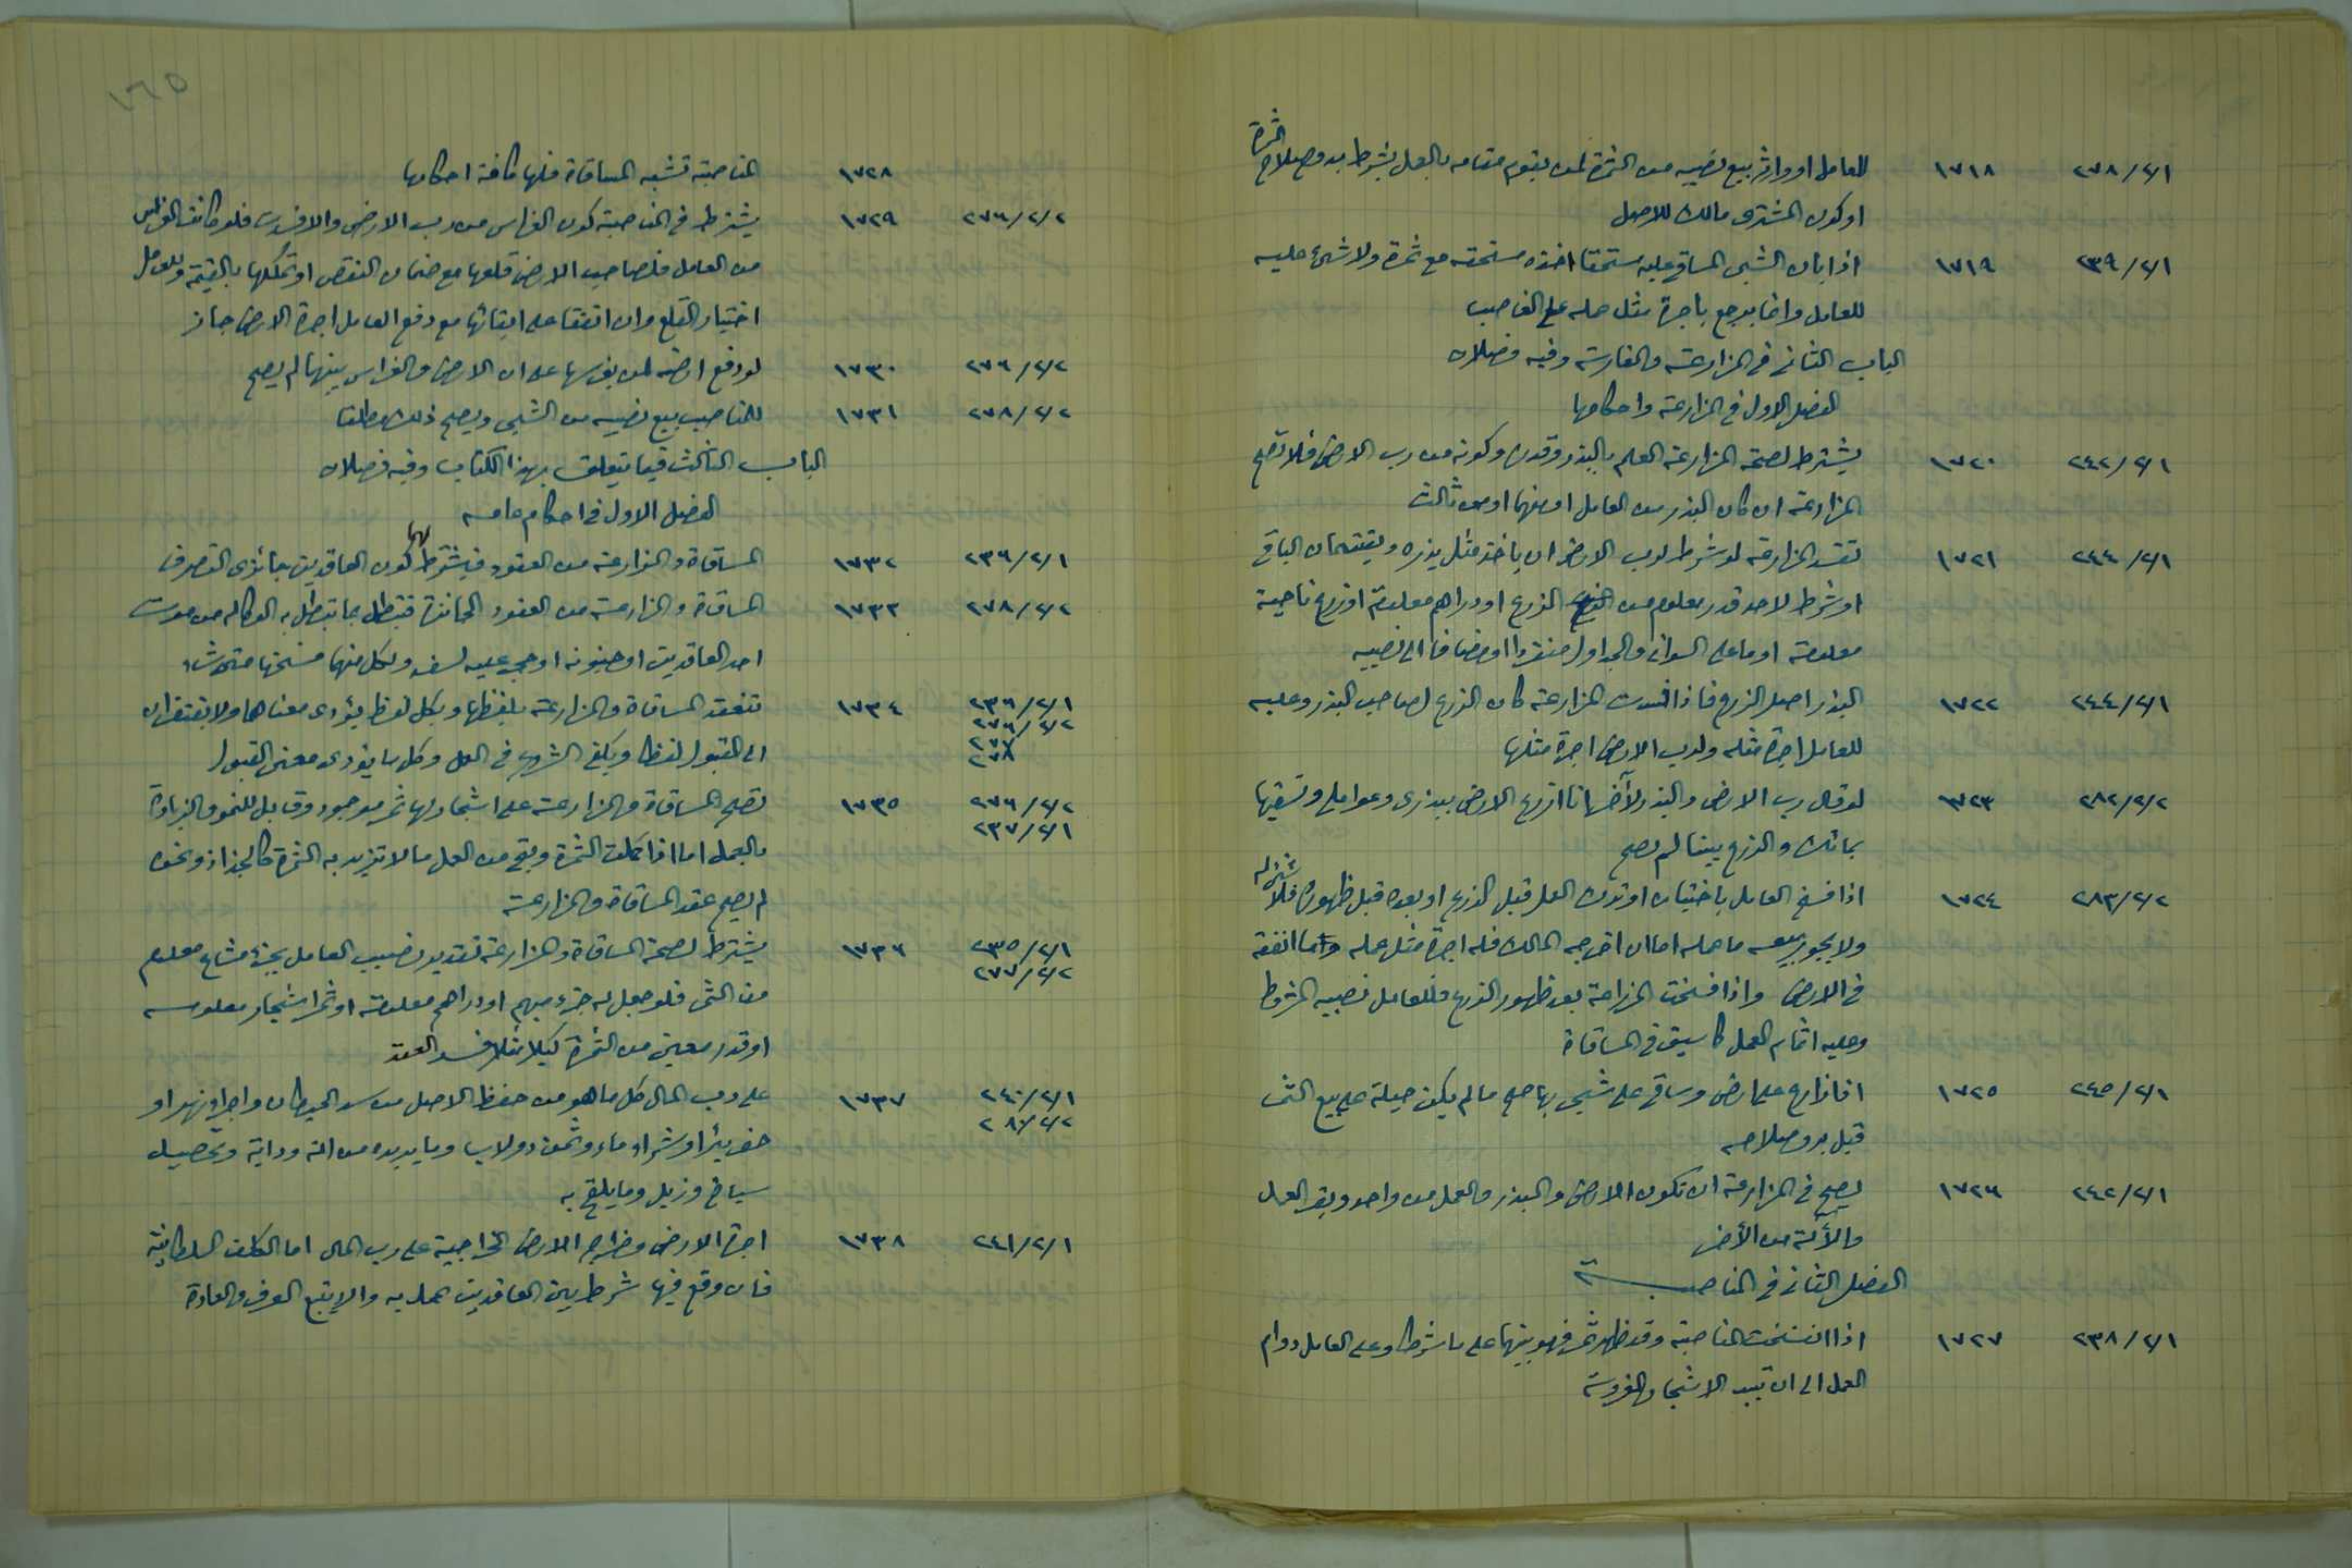 ٢٧٨/٢/١ ١٧١٨ للعامل او وارثه بيع نصيبه من الثمرة لمن يقوم مقامه بالعمل بشرط بدو صلاح الثمرة
او كون المشترى مالك للاصل
٢٣٩/٢/١ ١٧١٩ اذا بان الشجر المساقى عليه مستحقا اخذه مستحقه مع ثمرة ولا شئ عليه
للعامل وانما يرجع باجرة مثل عمله على الغاصب
الباب الثانى فى المزارعة والمغارسة وفيه فصلان
الفصل الاول فى المزارعة واحكامها
٢٤٢/٢/١ ١٧٢٠ يشترط لصحة المزارعة العلم بالبذر وقدره وكونه من رب الارض فلا تصح
المزارعة ان كان البذر من العامل او منهما او من ثالث
٢٤٤/٢/١ ١٧٢١ تفسد المزارعة لو شرط لرب الارض ان ياخذ مثل بذره ويقتسمان الباقى
او شرط لاحد قدر معلوم من الزرع او دراهم معلومة او زرع ناحية
معلومة او ما على السواقى والجداول منفردا او مضافا الى نصيبه
٢٤٤/٢/١ ١٧٢٢ البذر اصل الزرع فاذا فسدت المزارعة كان الزرع لصاحب البذر وعليه
للعامل اجرة مثله ولرب الارض اجرة مثلها
٢٨٢/٢/٢ ١٧٢٣ لو قال رب الارض والبذر لآخر انا ازرع الارض ببذرى وعواملى وتسقيها
بمائك والزرع بيننا لم يصح
٢٨٣/٢/٢ ١٧٢٤ اذا فسخ العامل باختياره او ترك العمل قبل الزرع او بعده قبل ظهوره فلا شئ له
ولا يجوز بيعه ما عمله اما ان اخرجه المالك فله اجرة مثل عمله وما انفقه
فى الارض واذا فسخت المزارعة بعد ظهور الزرع فللعامل نصيبه المشروط
وعليه اتمام العمل كما سبق فى المساقاة
٢٤٥/٢/١ ١٧٢٥ اذا زارع على ارض وساقى على شجر بها صح ما لم يكن حيلة على بيع الثمر
قبل بدو صلاحه
٢٤٢/٢/١ ١٧٢٦ يصح فى المزارعة ان تكون الارض والبذر والعمل من واحد وبقر العمل
والآلة من الآخر
الفصل الثانى فى المناصبة
٢٣٨/٢/١ ١٧٢٧ اذا انفسخت المناصبة وقد ظهر ثمر فهو بينهما على ما شرطا وعلى العامل دوام
العمل الى ان تبيد الاشجار المغروسة
١٦٥
١٧٢٨ المناصبة تشبه المساقاة فلها كافة احكامها
٢٧٦/٢/٢ ١٧٢٩ يشترط فى المناصبة كون الغراس من رب الارض والا فسدت فلو كانت الغراس
من العامل فلصاحب الارض قلعها مع ضمان النقص او تملكها بالقيمة وللعامل
اختيار القلع وان اتفقا على ابقائها مع دفع العامل اجرة الارض جاز
٢٧٦/٢/٢ ١٧٣٠ لو دفع ارضه لمن يغرسها على ان الارض والغراس بينهما لم يصح
٢٧٨/٢/٢ ١٧٣١ للمناصب بيع نصيبه من الشجر ويصح ذلك مطلقا
الباب الثالث فيما يتعلق بهذا الكتاب وفيه فصلان
الفصل الاول فى احكام عامه
٢٣٦/٢/١ ١٧٣٢ المساقاة والمزارعة من العقود فيشترط لهما كون العاقدين جائزى التصرف
٢٧٨/٢/٢ ١٧٣٣ المساقاة والمزارعة من العقود الجائزة فتبطل بما تبطل به الوكاله من موت
احد العاقدين او جنونه او حجر عليه لسفه ولكل منهما فسخها متى شاء
٢٣٦/٢/١ ١٧٣٤ تنعقد المساقاة والمزارعة بلفظها وبكل لفظ يؤدى معناهما ولا يفتقران
٢٧٦/٢/٢
٢٧٨
الى القبول لفظا ويكفى الشروع فى العمل وكل ما يؤدى معنى القبول
٢٧٦/٢/٢ ١٧٣٥ تصح المساقاة والمزارعة على اشجار لها ثمر موجود وقابل للنمو والزيادة
٢٣٧/٢/١
بالعمل اما اذا كملت الثمرة وبقى من العمل ما لا تزيد به الثمرة كالجذاذ ونحوه
لم يصح عقد المساقاة والمزارعة
٢٣٥/٢/١ ١٧٣٦ يشترط لصحة المساقاة والمزارعة تقدير نصيب العامل بجزء مشاع معلوم
٢٧٧/٢/٢
من الثمر فلو جعل له جزء مبهم او دراهم معلومة او ثمر اشجار معلومه
او قدر معين من الثمرة كيلا مثلا فسد العقد
٢٤٠/٢/١ ١٧٣٧ على رب المال كل ما هو من حفظ الاصل من سد الحيطان واجراء نهر او
٢٨٧/٢/٢
حفر بئر او شراء ماء وثمن دولاب وما يديره من الة ودابة وتحصيل
سباخ وزبل وما يلقح به
٢٤١/٢/١ ١٧٣٨ اجرة الارض وخراج الارض الخراجية على رب المال اما الكلف السلطانية
فان وقع فيها شرط بين العاقدين عمل به والا يتبع العرف والعادة